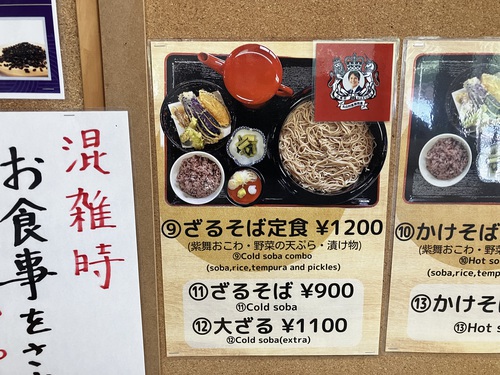 混雑時
お食事をさ
⑨ざるそば定食 ¥1200
(紫舞おこわ・野菜の天ぷら・漬け物)
⑨Cold soba combo
(soba,rice,tempura and pickles)
⑪ざるそば ¥900
⑪Cold soba
⑫大ざる ¥1100
⑫Cold soba(extra)
⑩かけそば
(紫舞おこわ・野菜
⑩Hot so
(soba,rice,temp
⑬かけそ
⑬Hot s